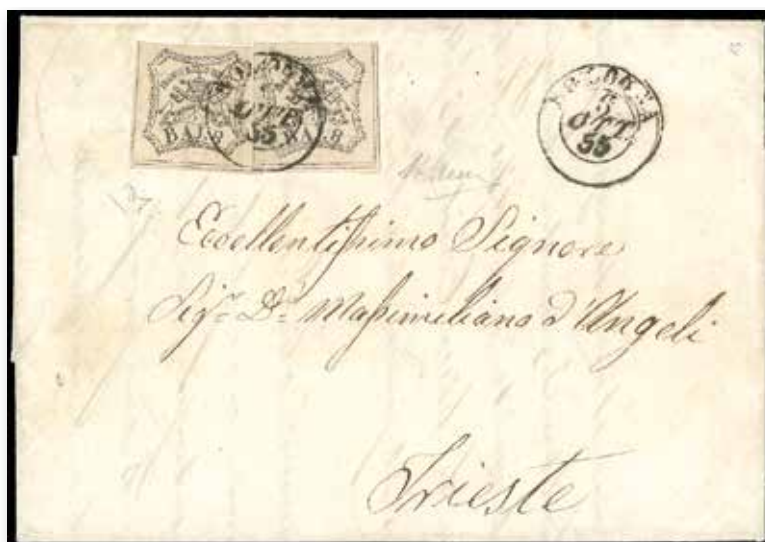 BAJ. 8 BAJ. 8
BOLOGNA
5
OTT.
55
BOLOGNA
5
OTT.
55
Eccellentissimo Signore
Sigr. Dr. Massimiliano d'Angeli
Trieste